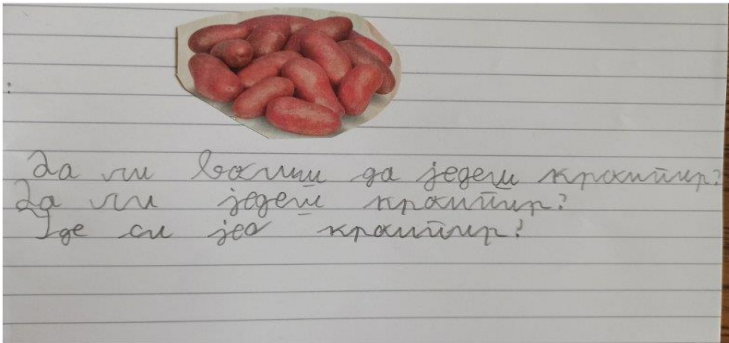 Да ли волиш да једеш кромпир?
Да ли једеш кромпир?
Где си јео кромпир?